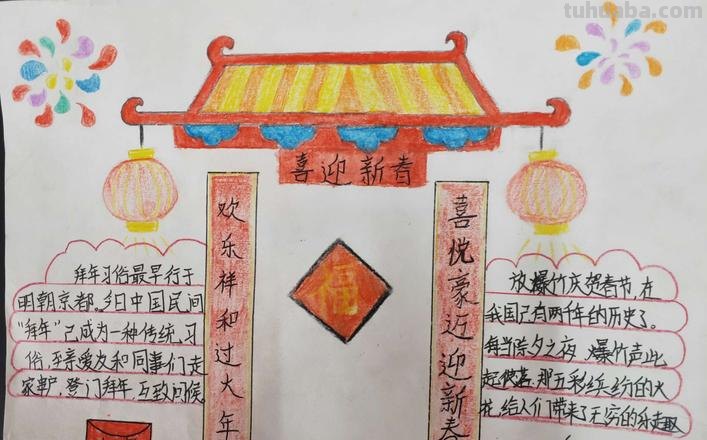 tuhuaba.com
喜迎新春
欢乐祥和过大年
喜悦豪迈迎新春
福
拜年习俗最早行于
明朝京都。今日中国民间
"拜年"已成为一种传统习
俗,至亲爱友和同事们走
家串户,登门拜年,互致问候
放爆竹庆贺春节,在
我国已有两千年的历史了。
每当除夕之夜,爆竹声此
起彼落,那五彩缤纷的火
花,给人们带来了无穷的乐趣